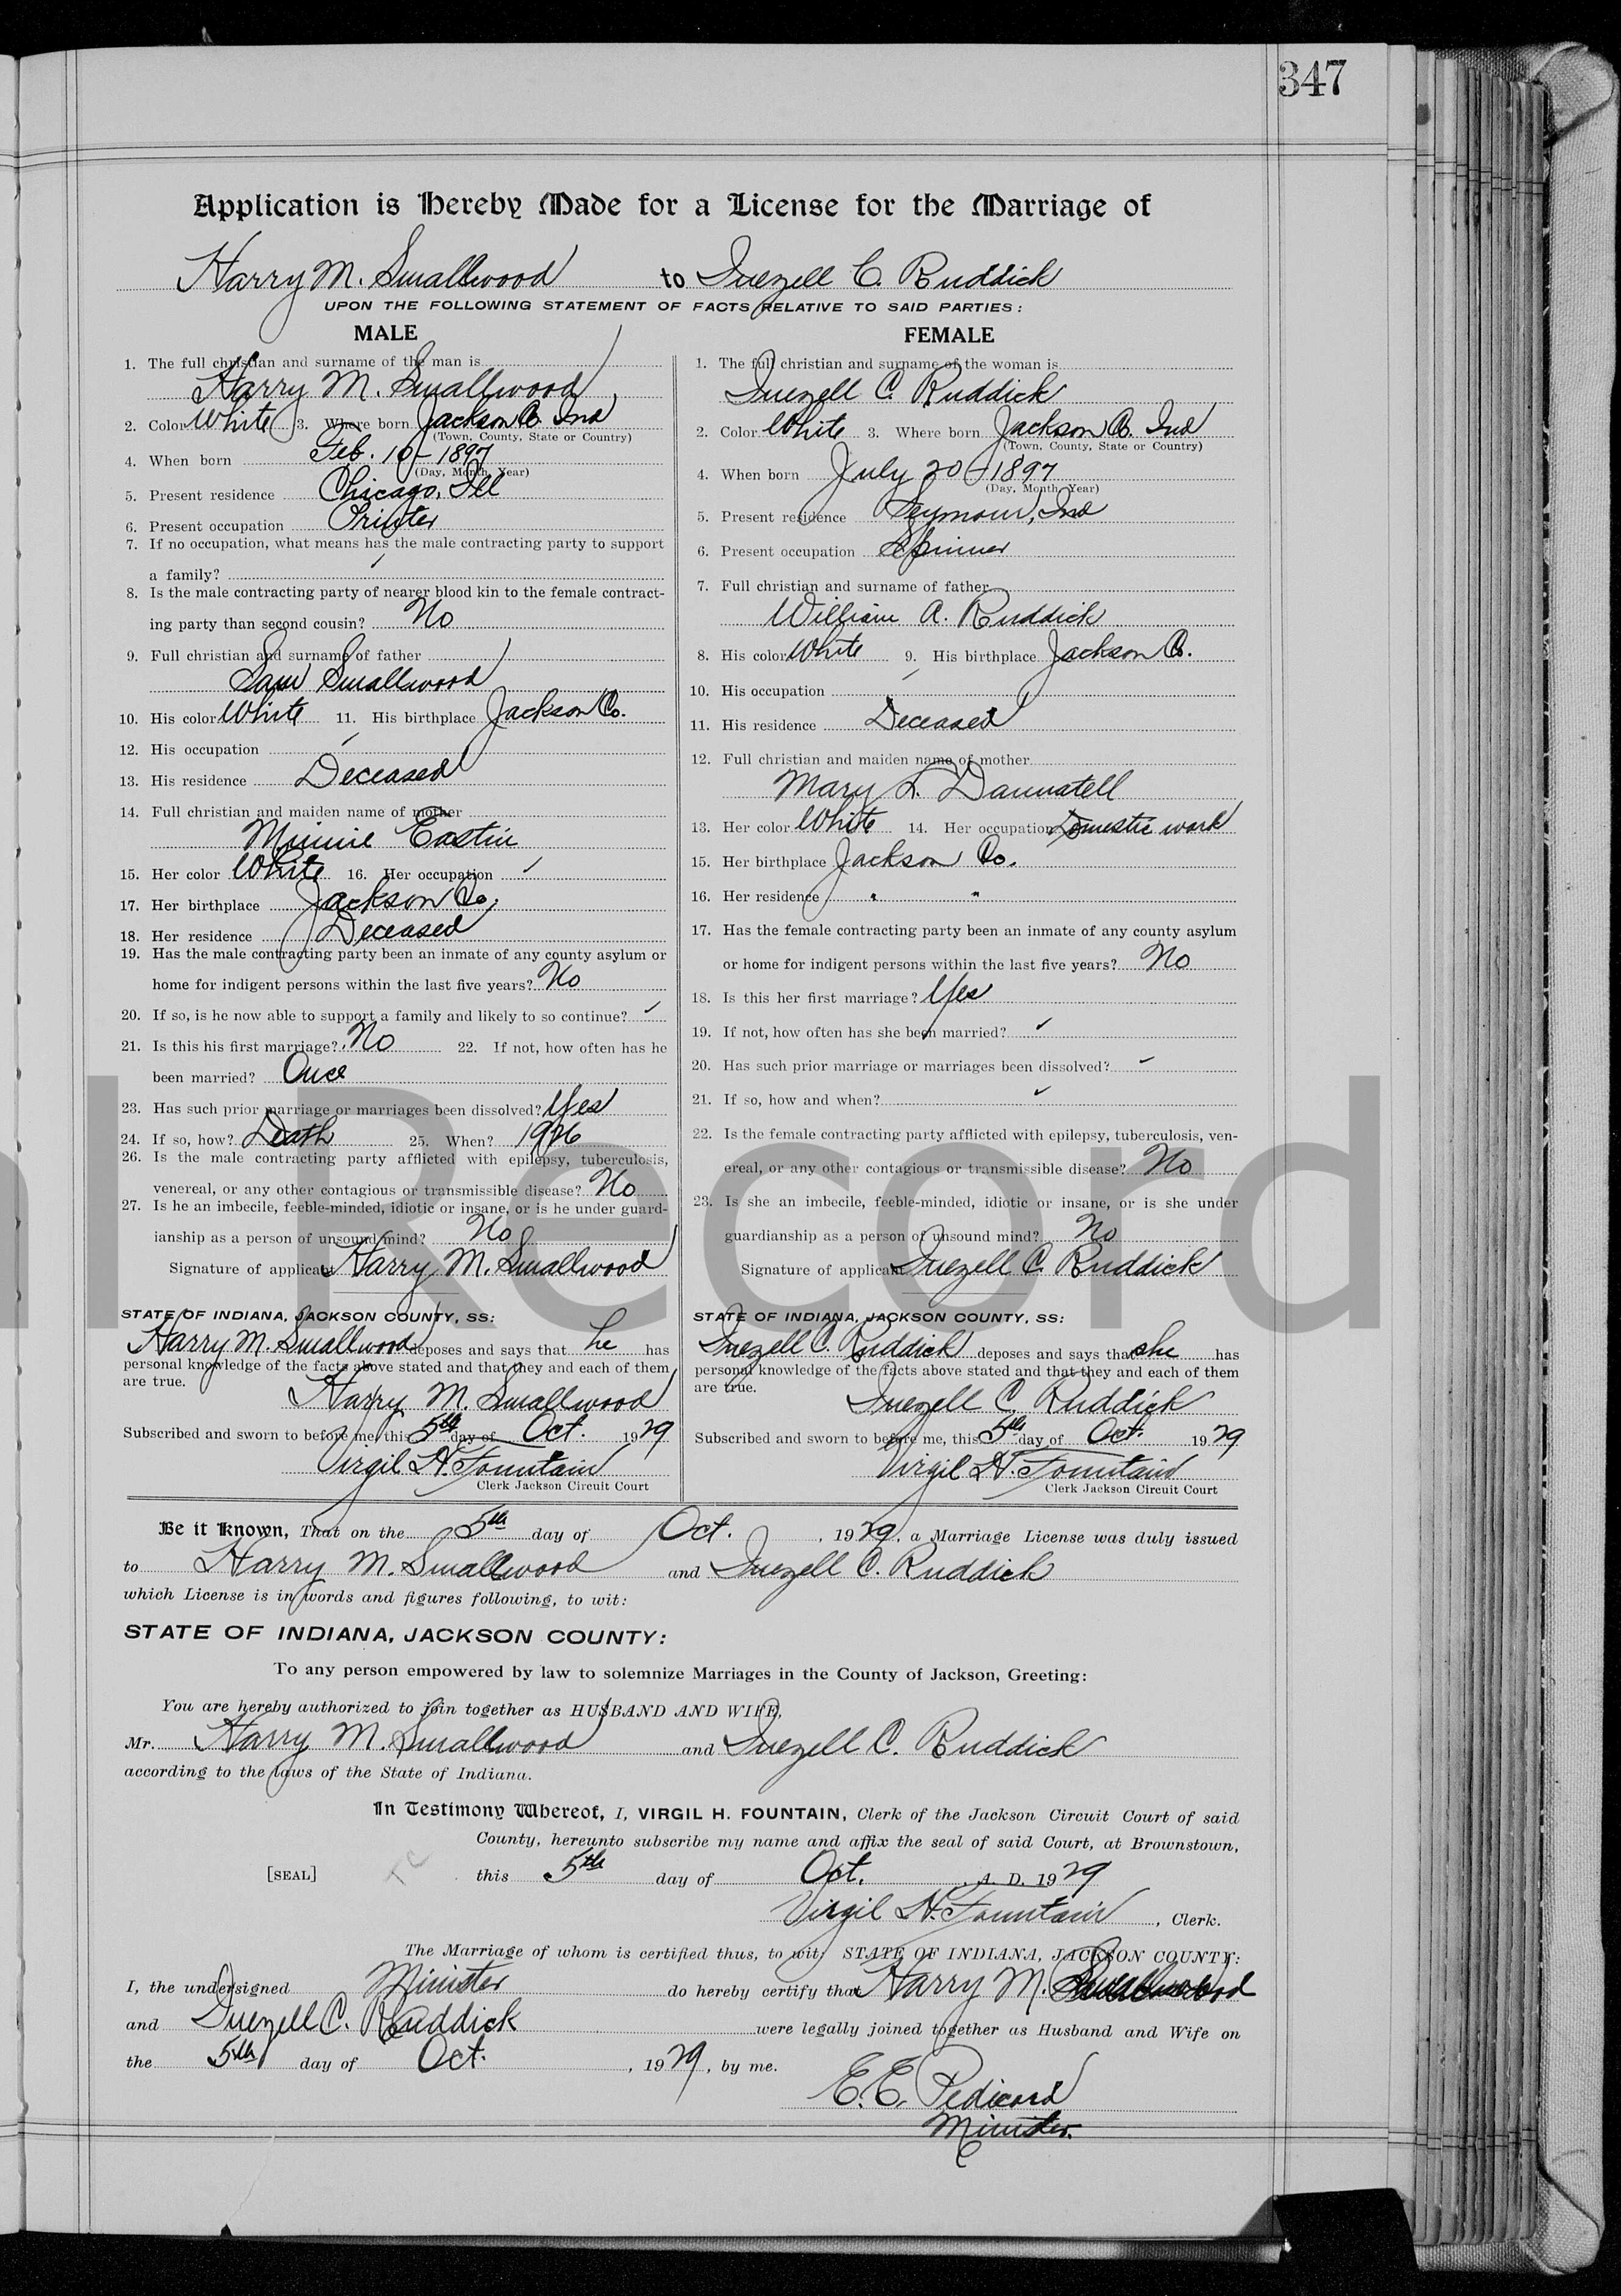 347
Application is Hereby Made for a License for the Marriage of
Harry M. Smallwood to Inezell C. Ruddick
UPON THE FOLLOWING STATEMENT OF FACTS RELATIVE TO SAID PARTIES:
MALE
1. The full christian and surname of the man is
Harry M. Smallwood
2. Color White 3. Where born Jackson Co. Ind
(Town, County, State or Country)
4. When born Feb. 10 - 1897
(Day, Month, Year)
5. Present residence Chicago, Ill
6. Present occupation Printer
7. If no occupation, what means has the male contracting party to support
a family? ✓
8. Is the male contracting party of nearer blood kin to the female contract-
ing party than second cousin? No
9. Full christian and surname of father
Sam Smallwood
10. His color White 11. His birthplace Jackson Co.
12. His occupation ✓
13. His residence Deceased
14. Full christian and maiden name of mother
Minnie Eastin
15. Her color White 16. Her occupation ✓
17. Her birthplace Jackson Co.
18. Her residence Deceased
19. Has the male contracting party been an inmate of any county asylum or
home for indigent persons within the last five years? No
20. If so, is he now able to support a family and likely to so continue? ✓
21. Is this his first marriage? No 22. If not, how often has he
been married? Once
23. Has such prior marriage or marriages been dissolved? Yes
24. If so, how? Death 25. When? 1926
26. Is the male contracting party afflicted with epilepsy, tuberculosis,
venereal, or any other contagious or transmissible disease? No
27. Is he an imbecile, feeble-minded, idiotic or insane, or is he under guard-
ianship as a person of unsound mind? No
Signature of applicant Harry M. Smallwood
STATE OF INDIANA, JACKSON COUNTY, SS:
Harry M. Smallwood deposes and says that he has
personal knowledge of the facts above stated and that they and each of them
are true.
Harry M. Smallwood
Subscribed and sworn to before me, this 5th day of Oct. 1929
Virgil H. Fountain
Clerk Jackson Circuit Court
FEMALE
1. The full christian and surname of the woman is
Inezell C. Ruddick
2. Color White 3. Where born Jackson Co. Ind
(Town, County, State or Country)
4. When born July 20 - 1897
(Day, Month, Year)
5. Present residence Seymour, Ind
6. Present occupation Spinner
7. Full christian and surname of father
William A. Ruddick
8. His color White 9. His birthplace Jackson Co.
10. His occupation ✓
11. His residence Deceased
12. Full christian and maiden name of mother
Mary L. Dannatell
13. Her color White 14. Her occupation Domestic work
15. Her birthplace Jackson Co.
16. Her residence " "
17. Has the female contracting party been an inmate of any county asylum
or home for indigent persons within the last five years? No
18. Is this her first marriage? Yes
19. If not, how often has she been married? ✓
20. Has such prior marriage or marriages been dissolved? ✓
21. If so, how and when? ✓
22. Is the female contracting party afflicted with epilepsy, tuberculosis, ven-
ereal, or any other contagious or transmissible disease? No
23. Is she an imbecile, feeble-minded, idiotic or insane, or is she under
guardianship as a person of unsound mind? No
Signature of applicant Inezell C. Ruddick
STATE OF INDIANA, JACKSON COUNTY, SS:
Inezell C. Ruddick deposes and says that she has
personal knowledge of the facts above stated and that they and each of them
are true.
Inezell C. Ruddick
Subscribed and sworn to before me, this 5th day of Oct. 1929
Virgil H. Fountain
Clerk Jackson Circuit Court
l Record
Be it known, That on the 5th day of Oct., 1929, a Marriage License was duly issued
to Harry M. Smallwood and Inezell C. Ruddick
which License is in words and figures following, to wit:
STATE OF INDIANA, JACKSON COUNTY:
To any person empowered by law to solemnize Marriages in the County of Jackson, Greeting:
You are hereby authorized to join together as HUSBAND AND WIFE,
Mr. Harry M. Smallwood and Inezell C. Ruddick
according to the laws of the State of Indiana.
In Testimony Whereof, I, VIRGIL H. FOUNTAIN, Clerk of the Jackson Circuit Court of said
County, hereunto subscribe my name and affix the seal of said Court, at Brownstown,
[SEAL] TC this 5th day of Oct., A. D. 1929
Virgil H. Fountain, Clerk.
The Marriage of whom is certified thus, to wit: STATE OF INDIANA, JACKSON COUNTY:
I, the undersigned Minister do hereby certify that Harry M. Smallwood
and Inezell C. Ruddick were legally joined together as Husband and Wife on
the 5th day of Oct., 1929, by me.
E. E. Pedicord
Minister.